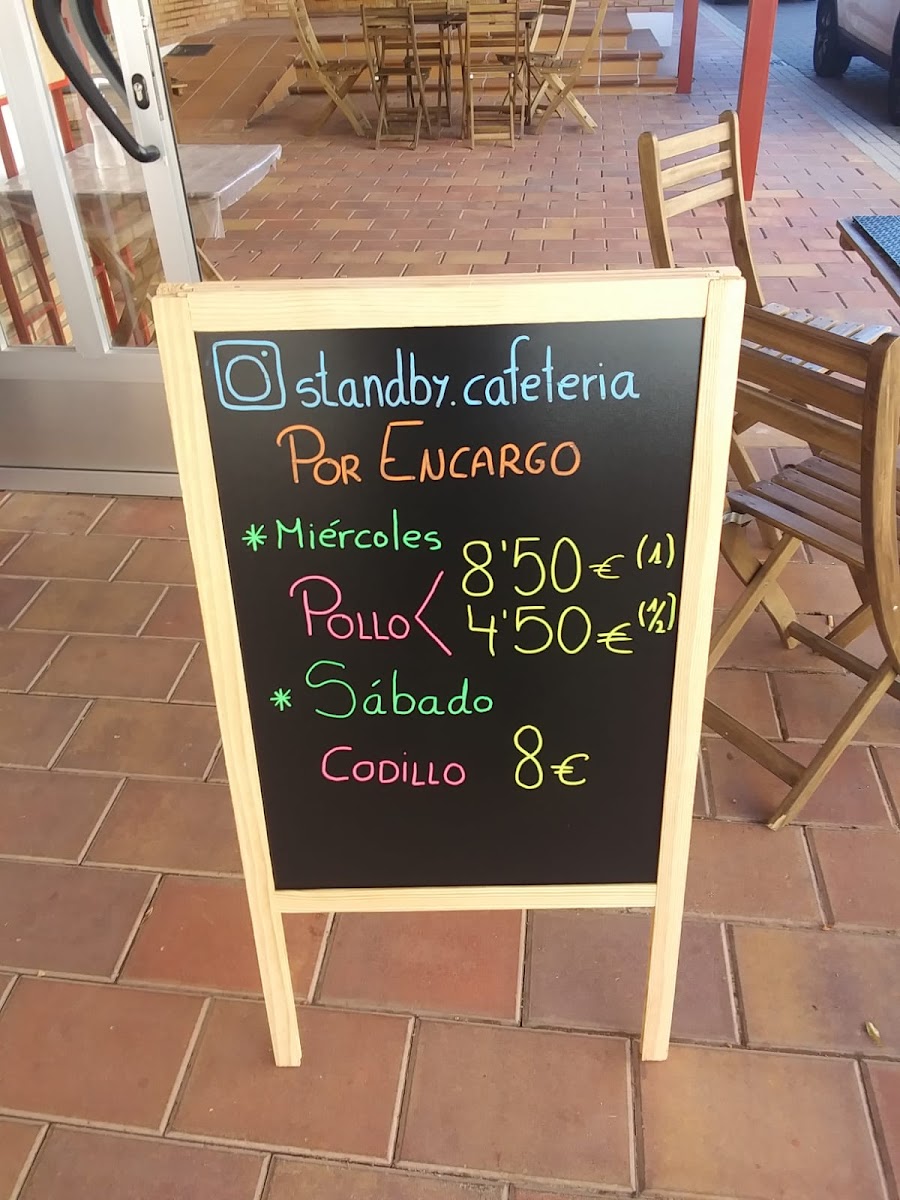 standby.cafeteria
POR ENCARGO
* Miércoles
POLLO < 8'50€ (1)
4'50€ (1/2)
* Sábado
CODILLO 8€